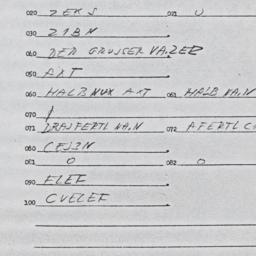 020 ZEKS 021 U
030 ZIBN
040 DER GROJSER VAJZER
050 AXT
060 HALB NUX AXT 061 HALB NAJN
070 /
071 DRAJFERTL NAJN 072 AFERTL
080 CEJIN
081 0 082 0
090 ELEF
100 CVELEF